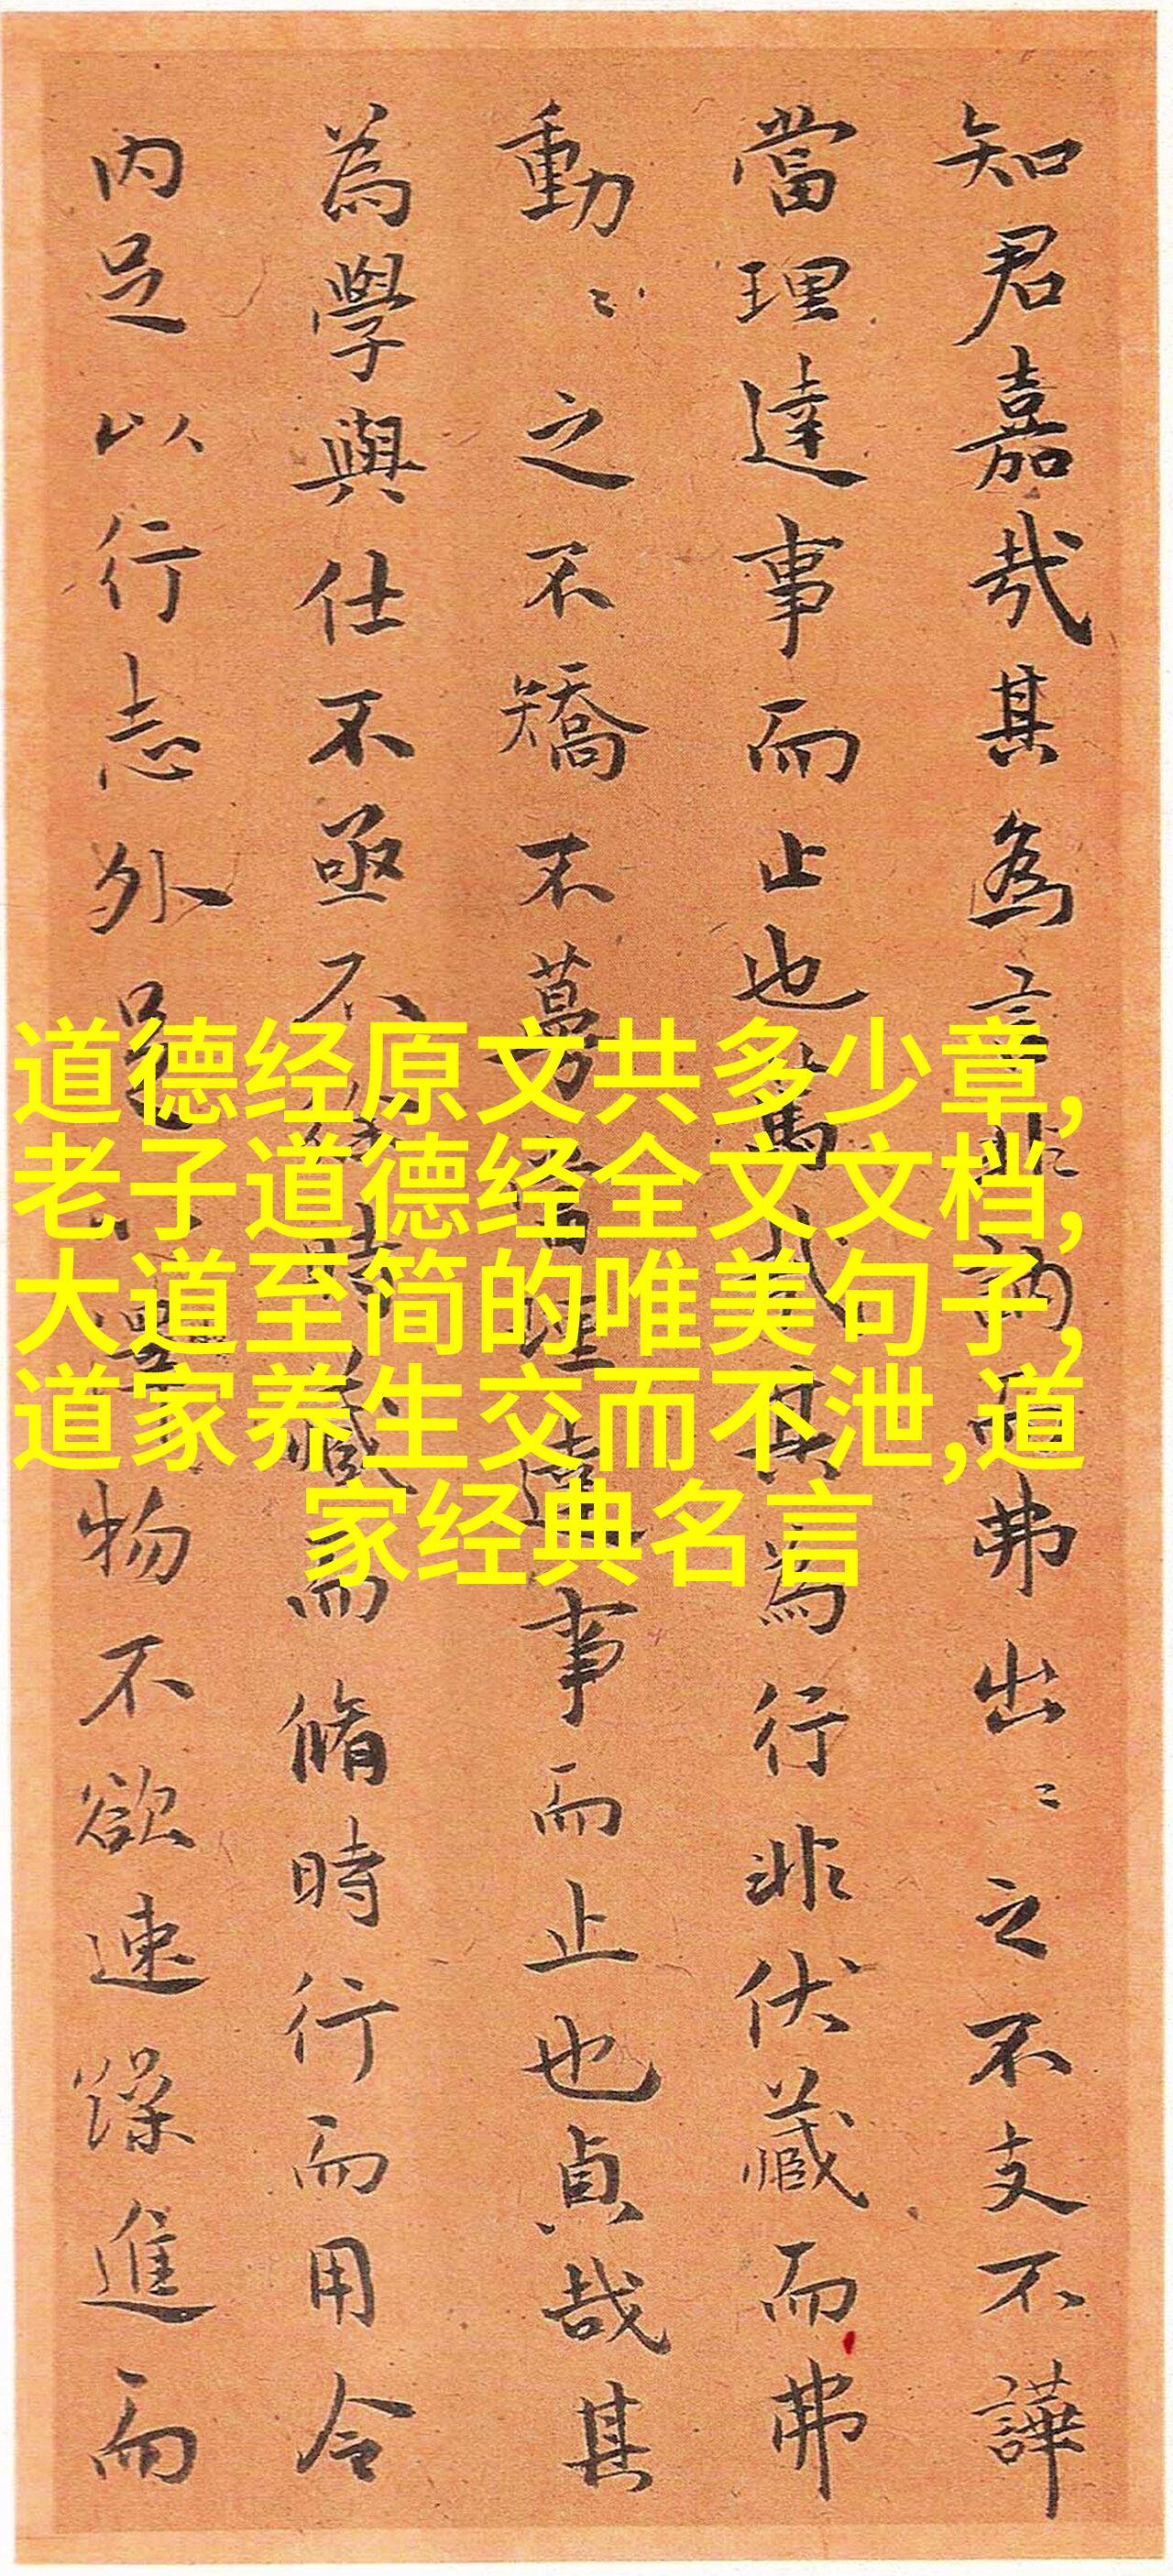 知君嘉哉其為言非訥而弗出〻之不支不譁
當理達事而止也篤哉其為行非伏藏而弗
動〻之不矯不當理達事而止也貞哉其
為學與仕不亟不時藏而脩時行而用令
内足以行志外以澤物不欲速躁進而
道德经原文共多少章,
老子道德经全文文档,
大道至简的唯美句子,
道家养生交而不泄,道
家经典名言